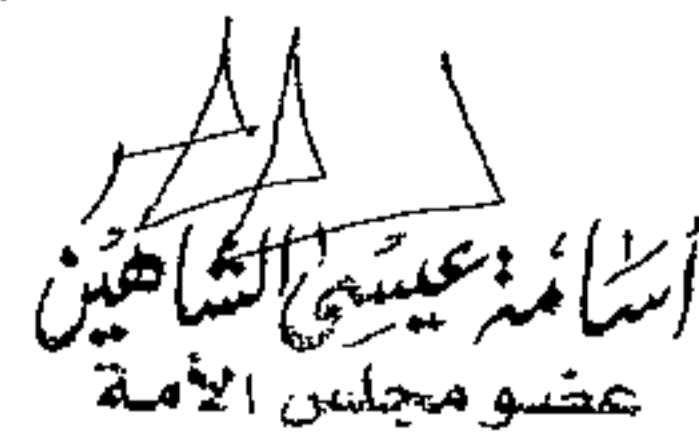 أسامة عيسى الشاهين
عضو مجلس الأمة